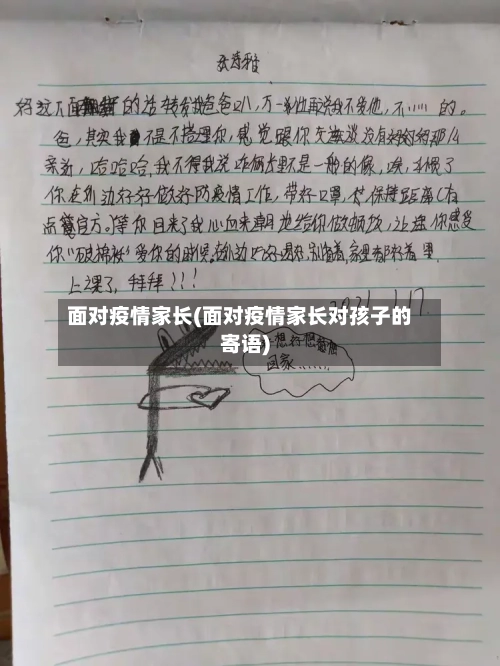 将这下面的话转发我爸爸叭,万一他再说我不爱他,不…… 的。
爸,其实我不是不搭理你,感觉跟你交谈没有妈妈那么
亲近,哈哈哈,我不得我说咱俩这不是一般的像,唉,
你在外边好好做好防疫情工作,带好口罩,保持距离(有
点官方。)等你回来了我心向来朝地给你做顿饭,让你感受
你"破棉袄"爱你的时候。在外边吃好喝好,别惦着,家里都好着里
上课了,拜拜!!!
2021.1.17
面对疫情家长(面对疫情家长对孩子的
寄语)
想行您
回家……